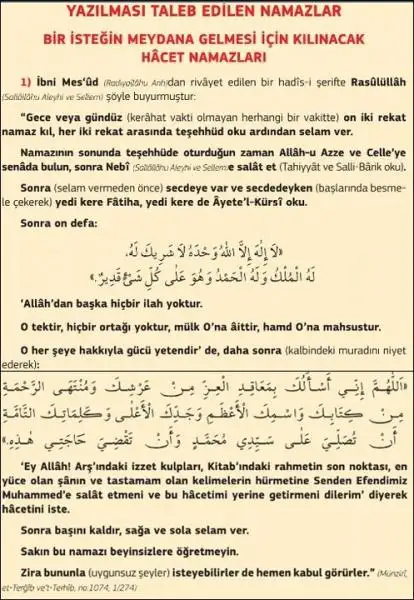 YAZILMASI TALEB EDİLEN NAMAZLAR
BİR İSTEĞİN MEYDANA GELMESİ İÇİN KILINACAK
HÂCET NAMAZLARI
1) İbni Mes'ûd (Radıyallâhu Anh)dan rivâyet edilen bir hadîs-i şerifte Rasûlüllâh
(Sallâllâhu Aleyhi ve Sellem) şöyle buyurmuştur:
"Gece veya gündüz (kerâhat vakti olmayan herhangi bir vakitte) on iki rekat
namaz kıl, her iki rekat arasında teşehhüd oku ardından selam ver.
Namazının sonunda teşehhüde oturduğun zaman Allâh-u Azze ve Celle'ye
senâda bulun, sonra Nebî (Sallâllâhu Aleyhi ve Sellem)e salât et (Tahiyyât ve Salli-Bârik oku).
Sonra (selam vermeden önce) secdeye var ve secdedeyken (başlarında besme-
le çekerek) yedi kere Fâtiha, yedi kere de Âyete'l-Kürsî oku.
Sonra on defa:
«لَا إِلٰهَ إِلَّا اللّٰهُ وَحْدَهُ لَا شَرِيكَ لَهُ،
لَهُ الْمُلْكُ وَلَهُ الْحَمْدُ وَهُوَ عَلَى كُلِّ شَيْءٍ قَدِيرٌ.»
'Allâh'dan başka hiçbir ilah yoktur.
O tektir, hiçbir ortağı yoktur, mülk O'na âittir, hamd O'na mahsustur.
O her şeye hakkıyla gücü yetendir' de, daha sonra (kalbindeki muradını niyet
ederek):
«اَللّٰهُمَّ إِنِّي أَسْأَلُكَ بِمَعَاقِدِ الْعِزِّ مِنْ عَرْشِكَ وَمُنْتَهَى الرَّحْمَةِ
مِنْ كِتَابِكَ وَاسْمِكَ الْأَعْظَمِ وَجَدِّكَ الْأَعْلَى وَكَلِمَاتِكَ التَّامَّةِ
أَنْ تُصَلِّيَ عَلَى سَيِّدِي مُحَمَّدٍ وَأَنْ تَقْضِيَ حَاجَتِي هٰذِهِ.»
'Ey Allâh! Arş'ındaki izzet kulpları, Kitab'ındaki rahmetin son noktası, en
yüce olan şânın ve tastamam olan kelimelerin hürmetine Senden Efendimiz
Muhammed'e salât etmeni ve bu hâcetimi yerine getirmeni dilerim' diyerek
hâcetini iste.
Sonra başını kaldır, sağa ve sola selam ver.
Sakın bu namazı beyinsizlere öğretmeyin.
Zira bununla (uygunsuz şeyler) isteyebilirler de hemen kabul görürler." (Münzirî,
et-Terğîb ve't-Terhîb, no:1074, 1/274)